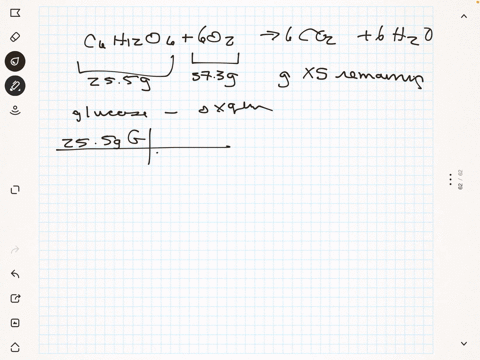 C6H12O6 + 6O2 → 6CO2 + 6H2O
25.5g 57.3g g XS remaining
glucose - oxygen
25.5g G